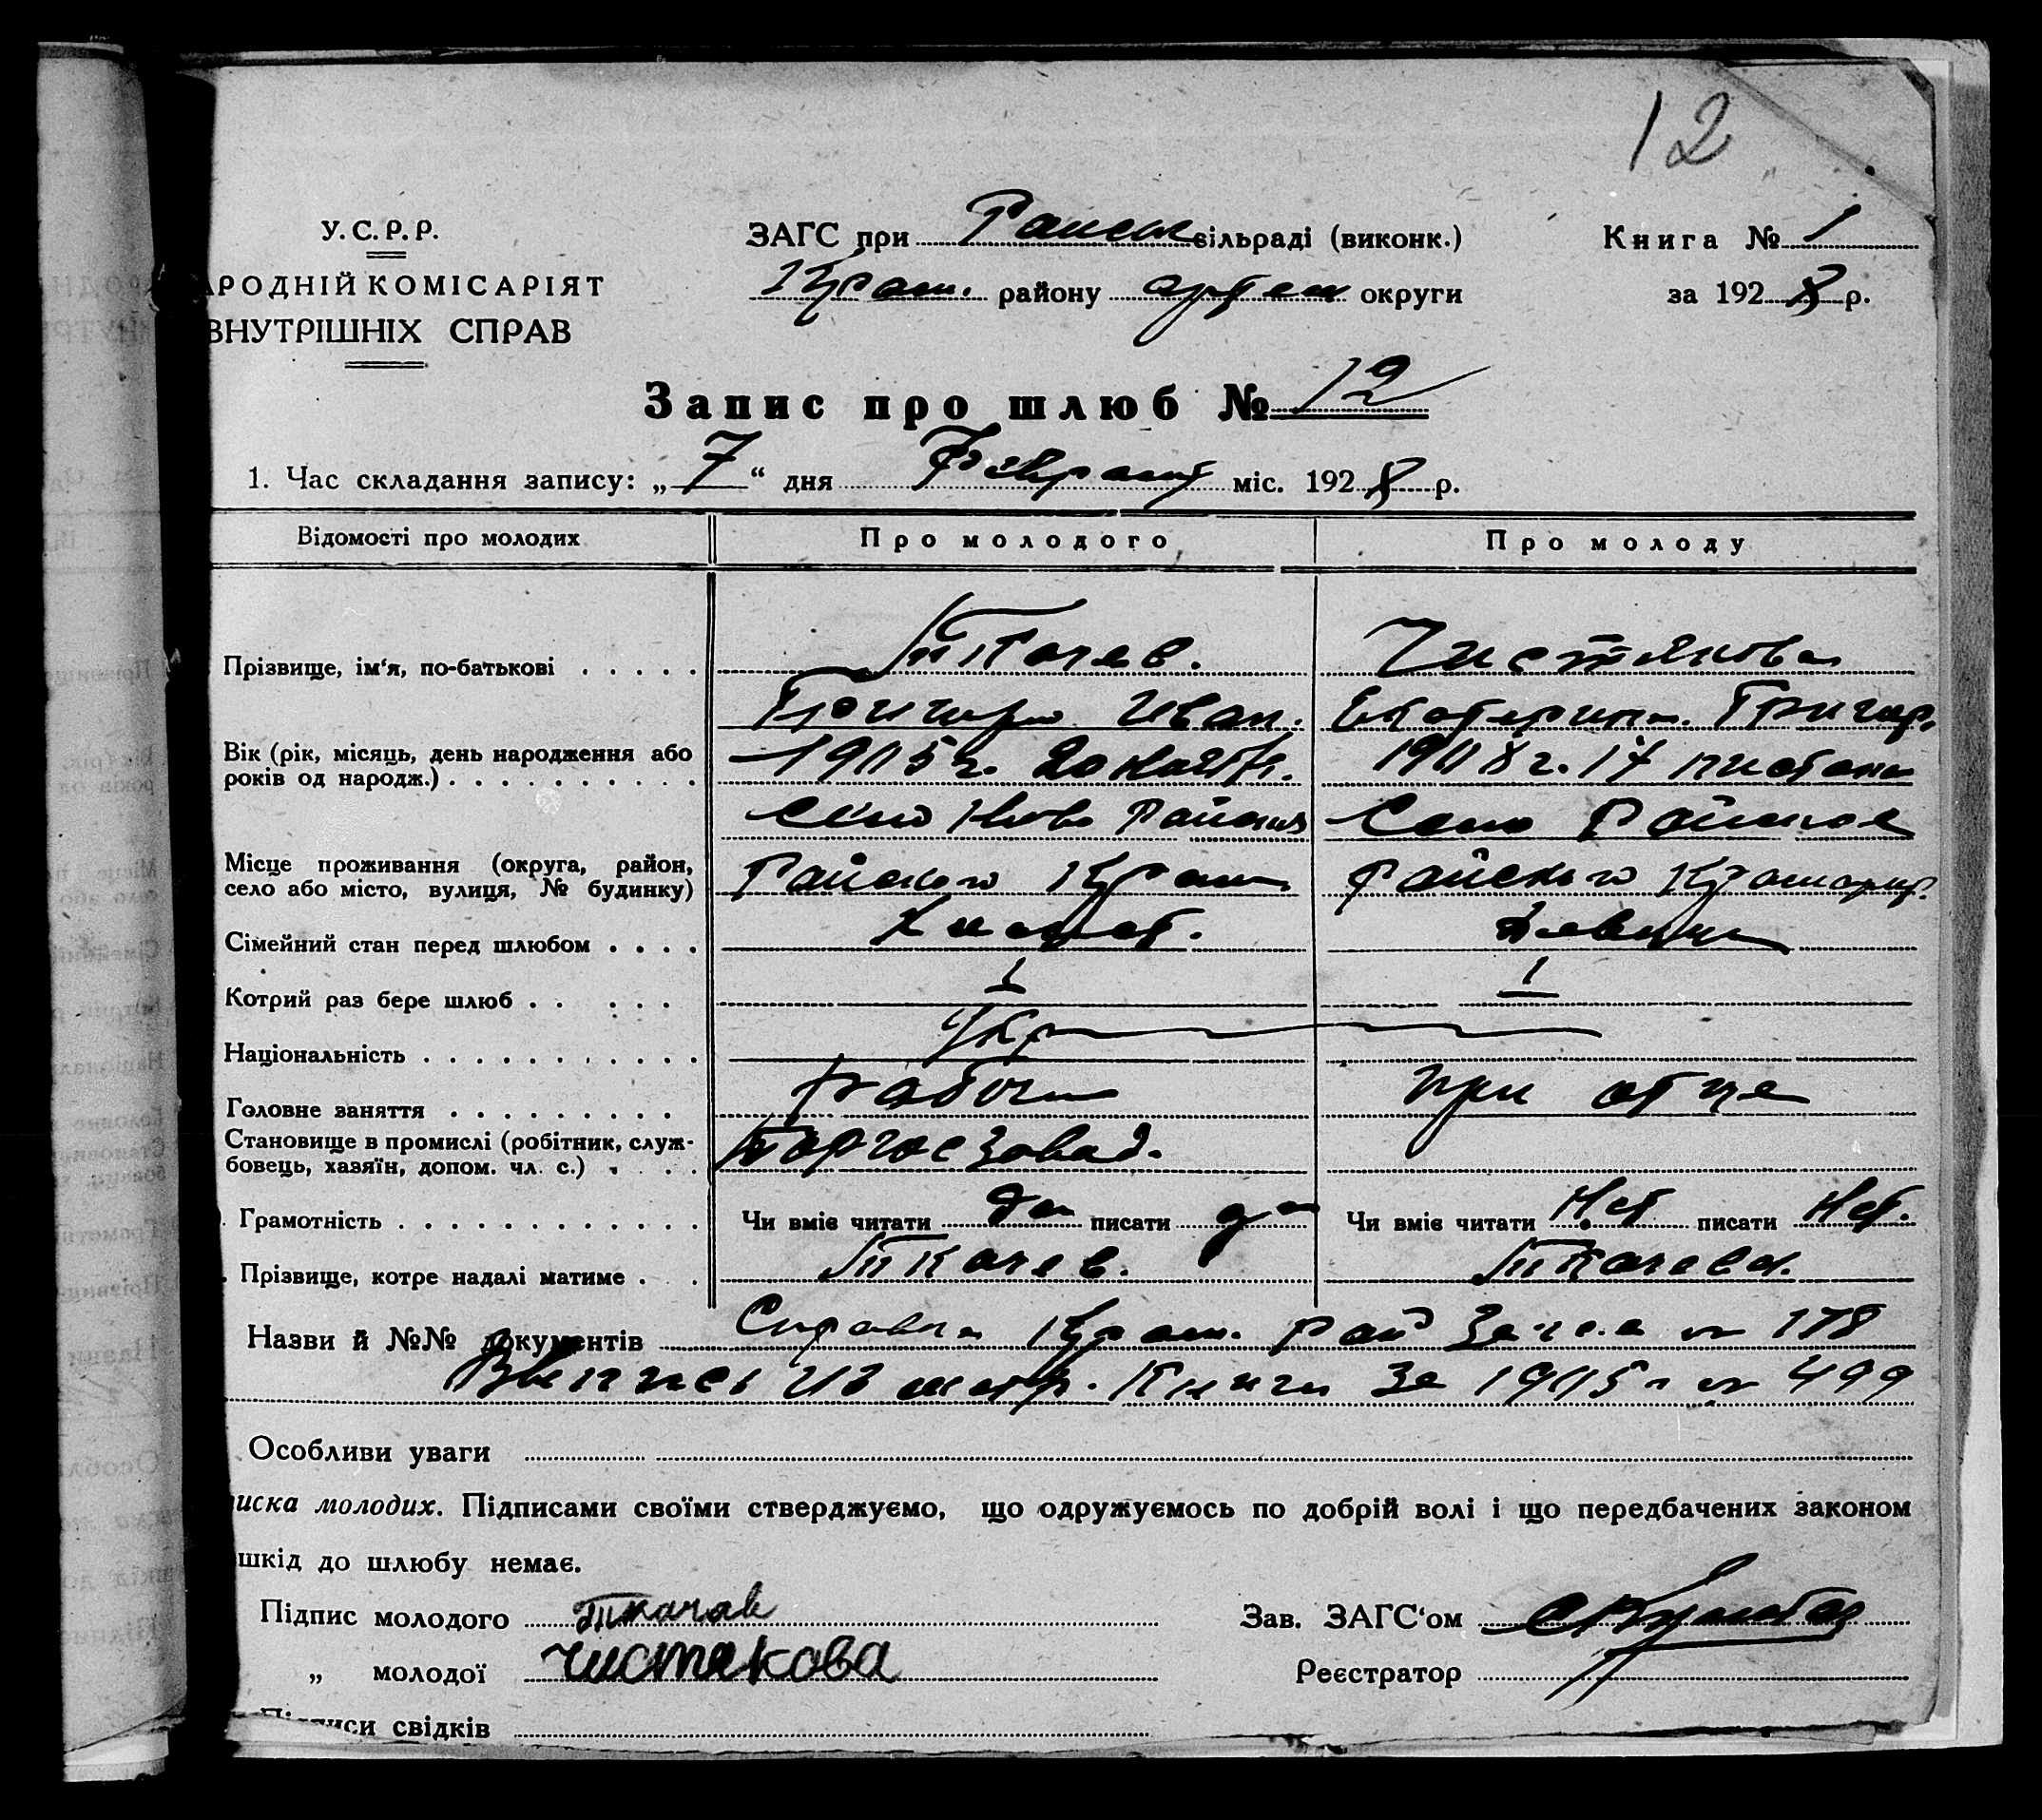 12
У.С.Р.Р.
АРОДНІЙ КОМІСАРІЯТ
ВНУТРІШНІХ СПРАВ
ЗАГС при Райск сільраді (виконк.)
Крам. району Артем округи
Книга № 1
за 1928 р.
Запис про шлюб № 12
1. Час складання запису: „ 7 “ дня Февраля міс. 1928 р.
Відомості про молодих Про молодого Про молоду
Прізвище, ім'я, по-батькові . . . . . Ткачев. Чистякова
Григори Иван. Екатерина Григор.
Вік (рік, місяць, день народження або 1905 г. 20 1908 г. 17
років од народж.) . . . . . . . . . .
село Ново Райское Село Райское
Місце проживання (округа, район, Райского Крам Райского Краматор.
село або місто, вулиця, № будинку)
Сімейний стан перед шлюбом . . . . Холост. Девица
Котрий раз бере шлюб . . . . . 1 1
Національність . . . . . . . . . . . Укр
Головне заняття . . . . . . . . . рабочи при отце
Становище в промислі (робітник, служ- Завод.
бовець, хазяїн, допом. чл. с.) . . . .
Грамотність . . . . . . . . . . . . Чи вміє читати да писати да Чи вміє читати Нет писати Нет.
Прізвище, котре надалі матиме . . . Ткачев. Ткачева.
Назви й №№ документів Справка Крам. Рай Загса № 178
Выпись из метр. Книги за 1905 г № 499
Особливи уваги
иска молодих. Підписами своїми стверджуємо, що одружуємось по добрій волі і що передбачених законом
шкід до шлюбу немає.
Підпис молодого Ткачев Зав. ЗАГС'ом
„ молодої Чистякова Реєстратор
Підписи свідків